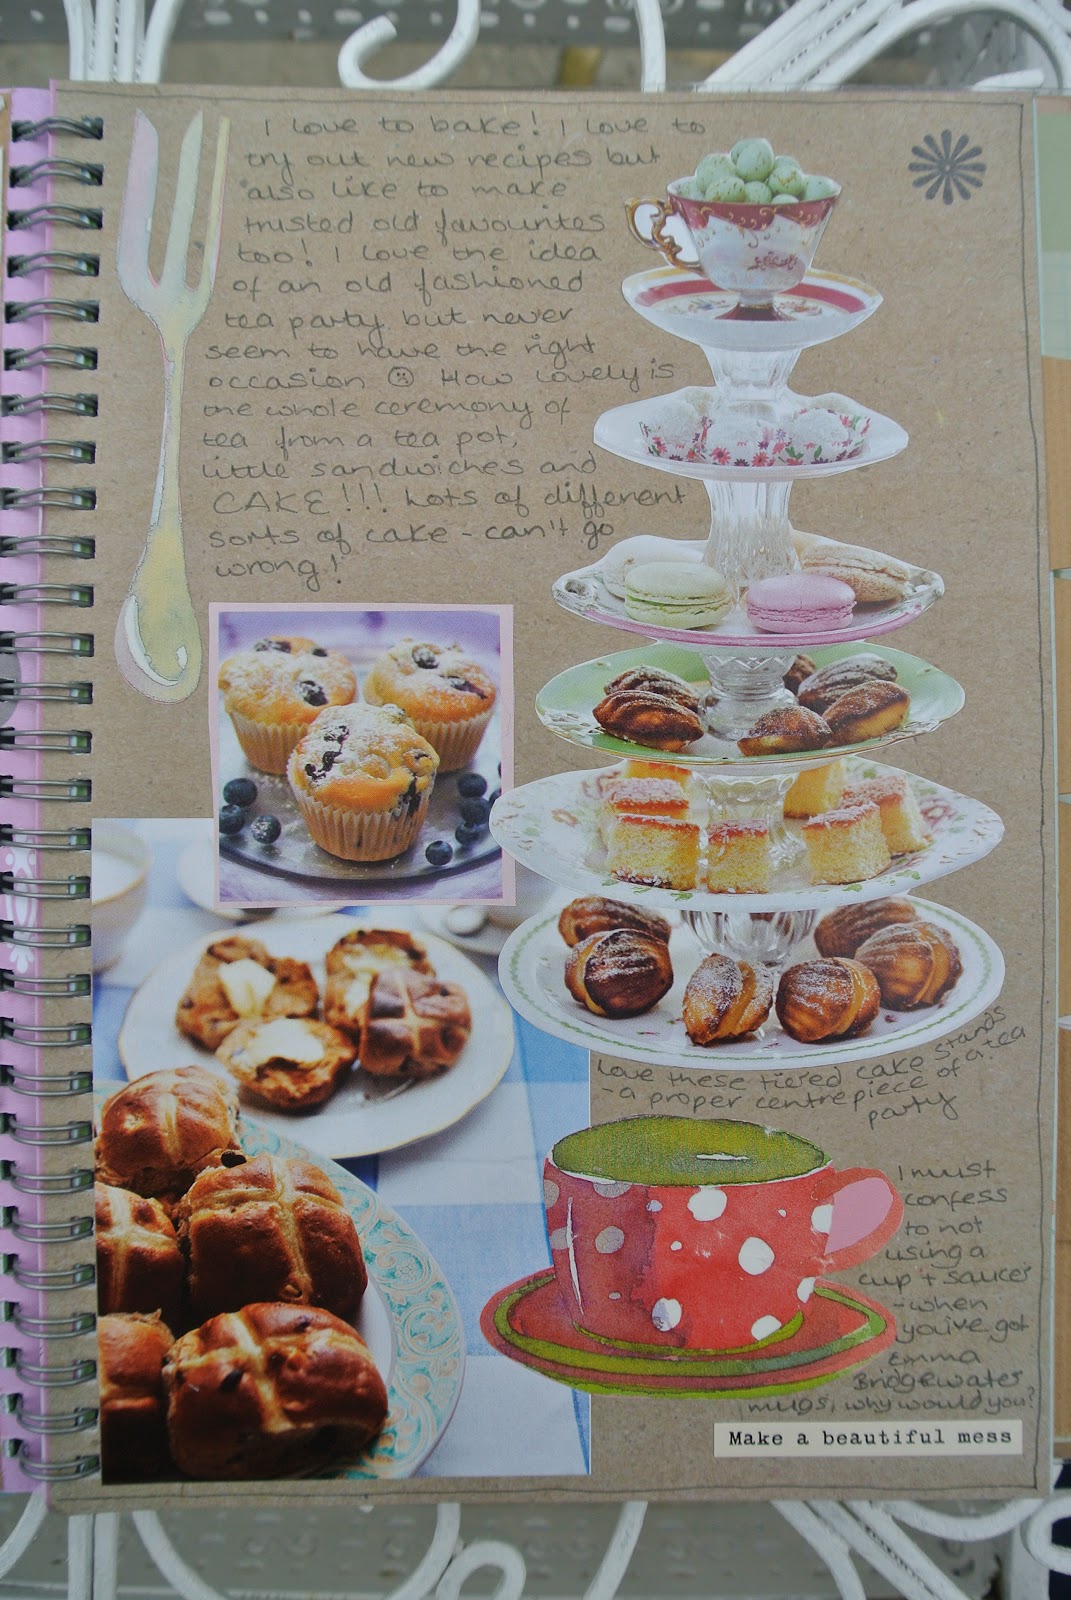 I love to bake! I love to
try out new recipes but
also like to make
trusted old favourites
too! I love the idea
of an old fashioned
tea party but never
seem to have the right
occasion ☹ How lovely is
the whole ceremony of
tea from a tea pot,
little sandwiches and
CAKE!!! Lots of different
sorts of cake - can't go
wrong!
Love these tiered cake stands
- a proper centrepiece of a tea
party
I must
confess
to not
using a
cup + saucer
- when
you've got
Emma
Bridgewater
mugs, why would you?
Make a beautiful mess